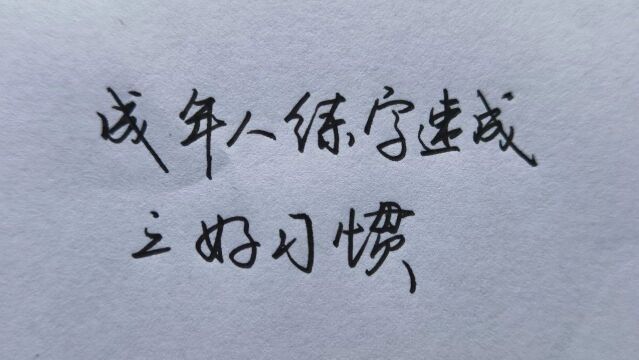 成年人练字速成
之好习惯